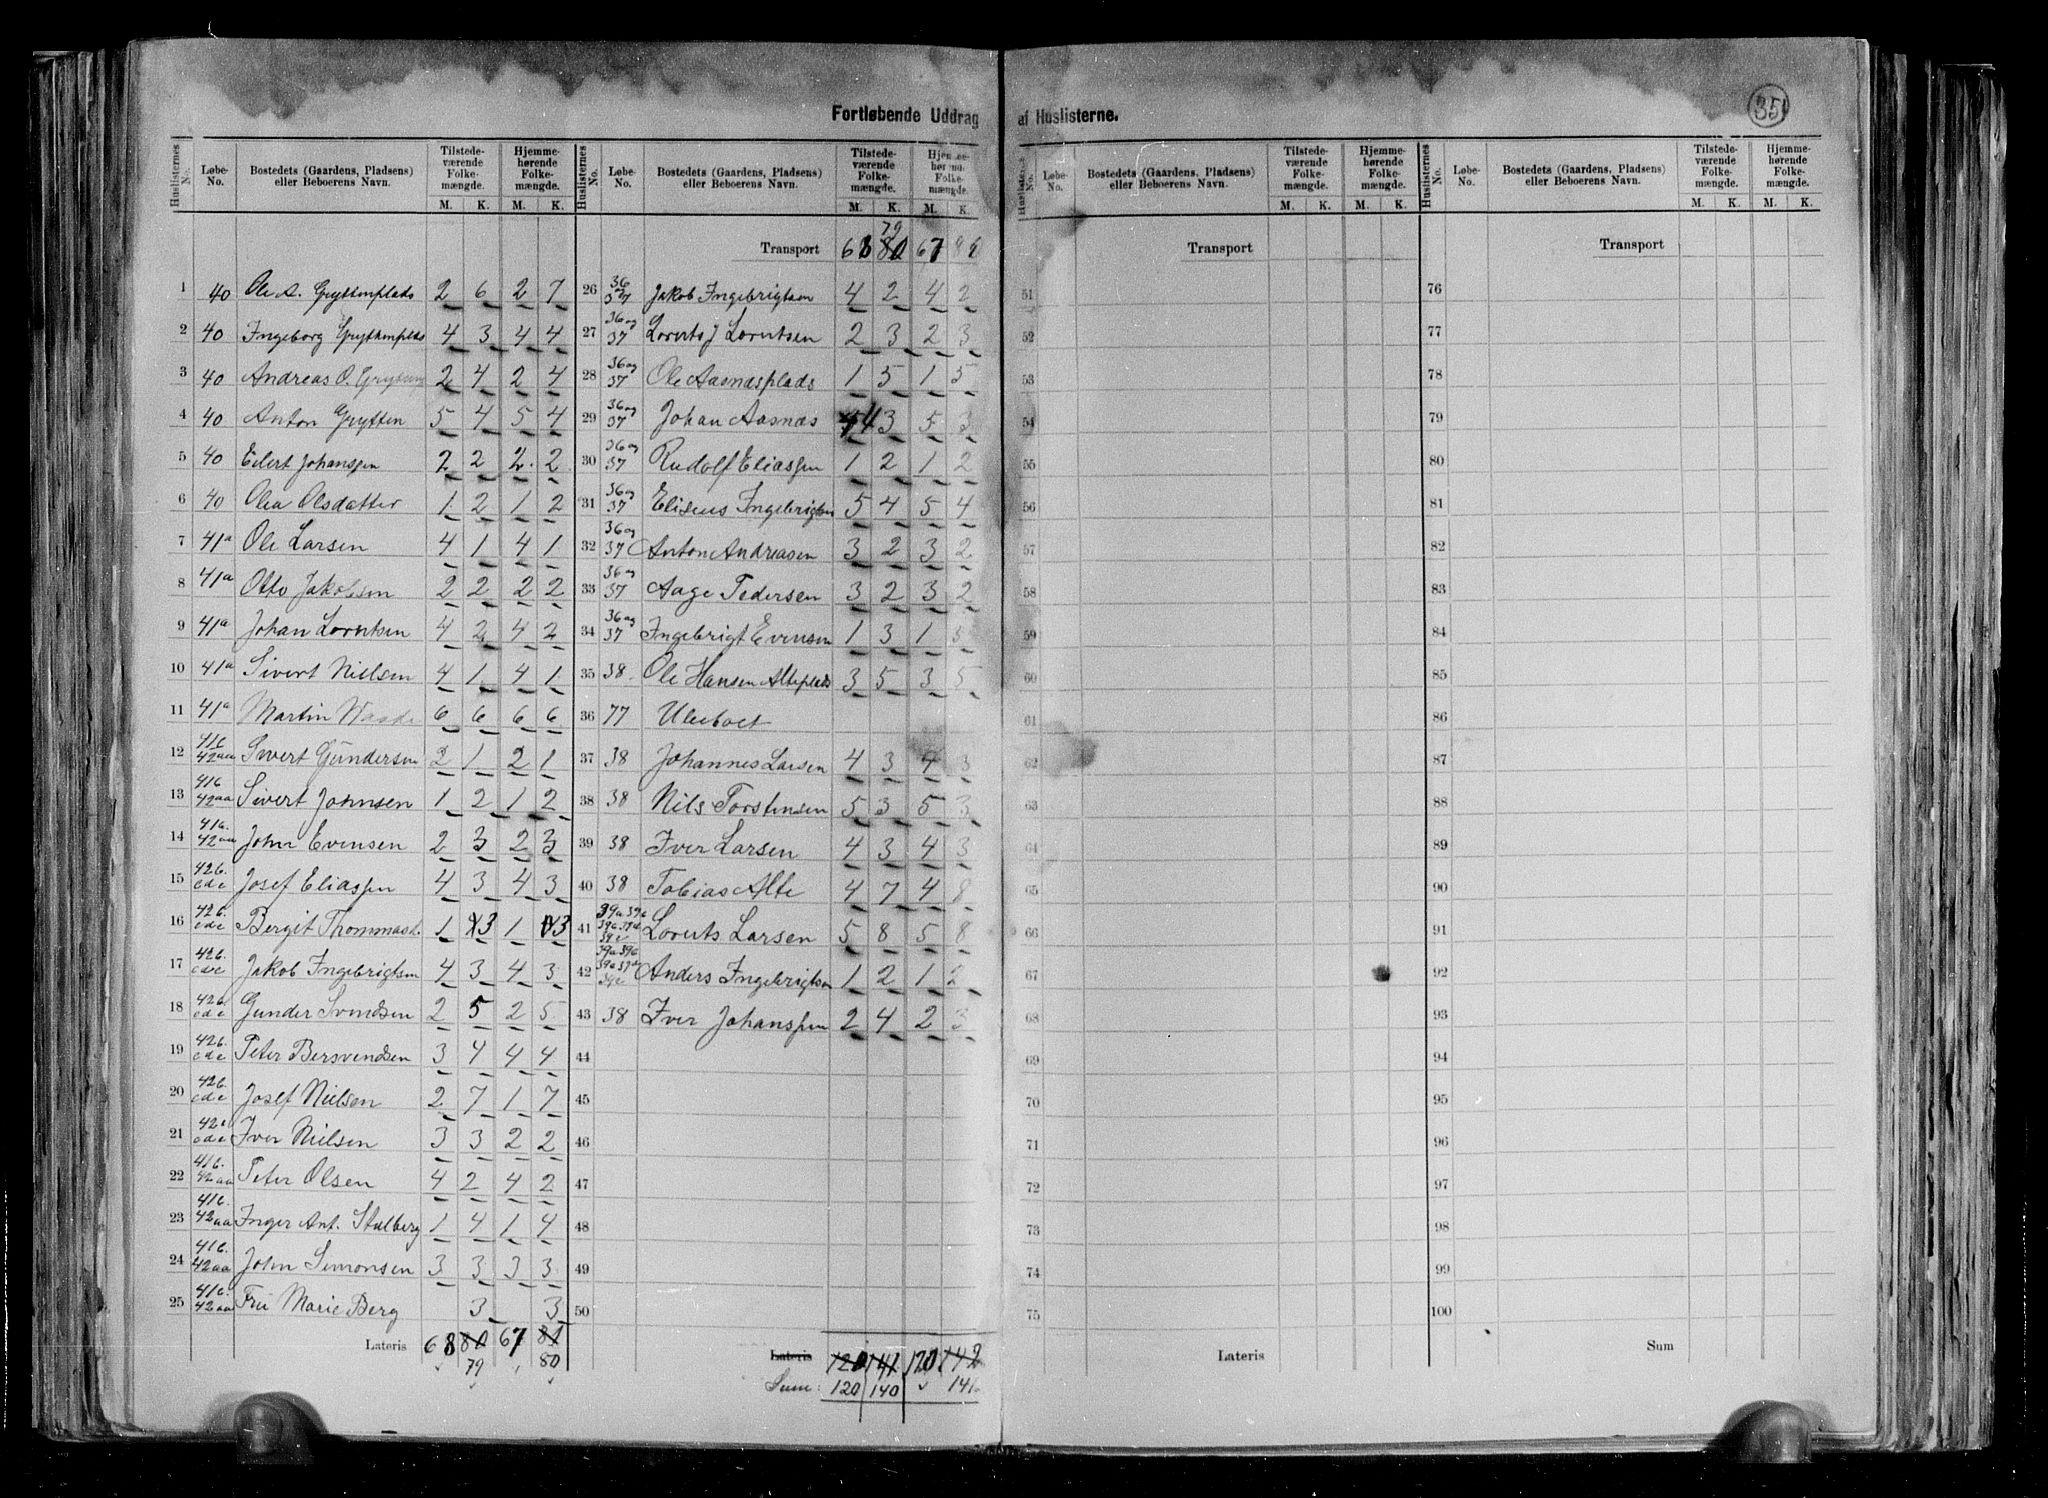 Fortløbende Uddrag af Huslisterne.
35
Huslisternes No. Løbe-No. Bostedets (Gaardens, Pladsens) eller Beboerens Navn. Tilstedeværende Folkemængde. M. K. Hjemmehørende Folkemængde. M. K.
1 40 Ole A. Gryttenplads 2 6 2 7
2 40 Ingeborg Gryttenplads 4 3 4 4
3 40 Andreas O. Grytten 2 4 2 4
4 40 Anton Grytten 5 4 5 4
5 40 Eilert Johanssen 2 2 2 2
6 40 Olea Olsdatter 1 2 1 2
7 41a Ole Larsen 4 1 4 1
8 41a Otto Jakobsen 2 2 2 2
9 41a Johan Lorntsen 4 2 4 2
10 41a Sivert Nielsen 4 1 4 1
11 41a Martin Waade 6 6 6 6
12 41b 42aa Sivert Gundersen 2 1 2 1
13 41b 42aa Sivert Johnsen 1 2 1 2
14 41b. 42aa John Evensen 2 3 2 3
15 42b. cde Josef Eliassen 4 3 4 3
16 42b. cde Bergit Thommasd. 1 3 1 3
17 42b. cde Jakob Ingebrigtsen 4 3 4 3
18 42b. cde Gunder Svendsen 2 5 2 5
19 42b. cde Peter Bersvendsen 3 4 4 4
20 42b. cde Josef Nielsen 2 7 1 7
21 42b cde Iver Nielsen 3 3 2 2
22 41b. 42aa Peter Olsen 4 2 4 2
23 41b. 42aa Inger Ant. Stulberg 1 4 1 4
24 41b. 42aa John Simonsen 3 3 3 3
25 41b. 42aa Fru Marie Berg 3 3
Lateris 68 80 67 81
79 80
Huslisternes No. Løbe-No. Bostedets (Gaardens, Pladsens) eller Beboerens Navn. Tilstedeværende Folkemængde. M. K. Hjemmehørende Folkemængde. M. K.
79
Transport 68 80 67
26 36 og 37 Jakob Ingebrigtsen 4 2 4 2
27 36 og 37 Lornts J Lorntsen 2 3 2 3
28 36 og 37 Ole Aasnæsplads 1 5 1 5
29 36 og 37 Johan Aasnæs 4 3 5 3
30 36 og 37 Rudolf Eliassen 1 2 1 2
31 36 og 37 Eliseus Ingebrigtsen 5 4 5 4
32 36 og 37 Anton Andreasen 3 2 3 2
33 36 og 37 Aage Pedersen 3 2 3 2
34 36 og 37 Ingebrigt Evensen 1 3 1 3
35 38. Ole Hansen Alteplads 3 5 3 5
36 77 Ubeboet
37 38 Johannes Larsen 4 3 4 3
38 38 Nils Torstensen 5 3 5 3
39 38 Iver Larsen 4 3 4 3
40 38 Tobias Alte 4 7 4 8
41 39a 39b 39c 39d 39e Lornts Larsen 5 8 5 8
42 39a 39b 39c 39d 39e Anders Ingebrigtsen 1 2 1 2
43 38 Iver Johanssen 2 4 2 3
44
45
46
47
48
49
50
Lateris 120 141 120 142
Sum: 120 140 141
Huslisternes No. Løbe-No. Bostedets (Gaardens, Pladsens) eller Beboerens Navn. Tilstedeværende Folkemængde. M. K. Hjemmehørende Folkemængde. M. K.
Transport
51
52
53
54
55
56
57
58
59
60
61
62
63
64
65
66
67
68
69
70
71
72
73
74
75
Lateris
Huslisternes No. Løbe-No. Bostedets (Gaardens, Pladsens) eller Beboerens Navn. Tilstedeværende Folkemængde. M. K. Hjemmehørende Folkemængde. M. K.
Transport
76
77
78
79
80
81
82
83
84
85
86
87
88
89
90
91
92
93
94
95
96
97
98
99
100
Sum